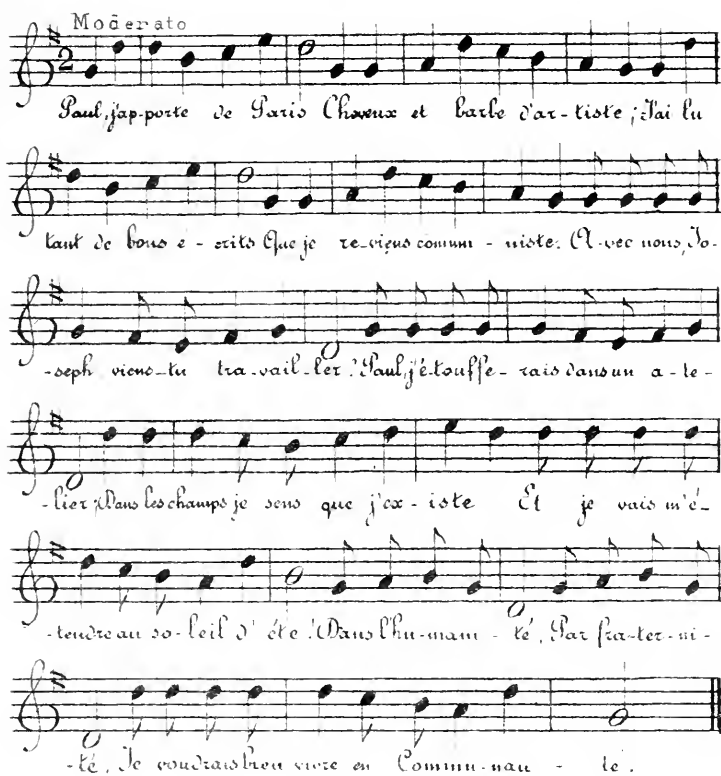 Moderato
2
Paul, j'ap-porte de Paris Cheveux et barbe d'ar-tiste; J'ai lu
tant de bons é-crits Que je re-viens commu-niste. A-vec nous, Jo-
-seph viens-tu tra-vail-ler? Paul, j'é-touffe-rais dans un a-te-
-lier; Dans les champs je sens que j'ex-iste Et je vais m'é-
-tendre au so-leil d'été! Dans l'hu-mani-té, Par fra-ter-ni-
-té, Je voudrais bien vivre en Commu-nau-té.